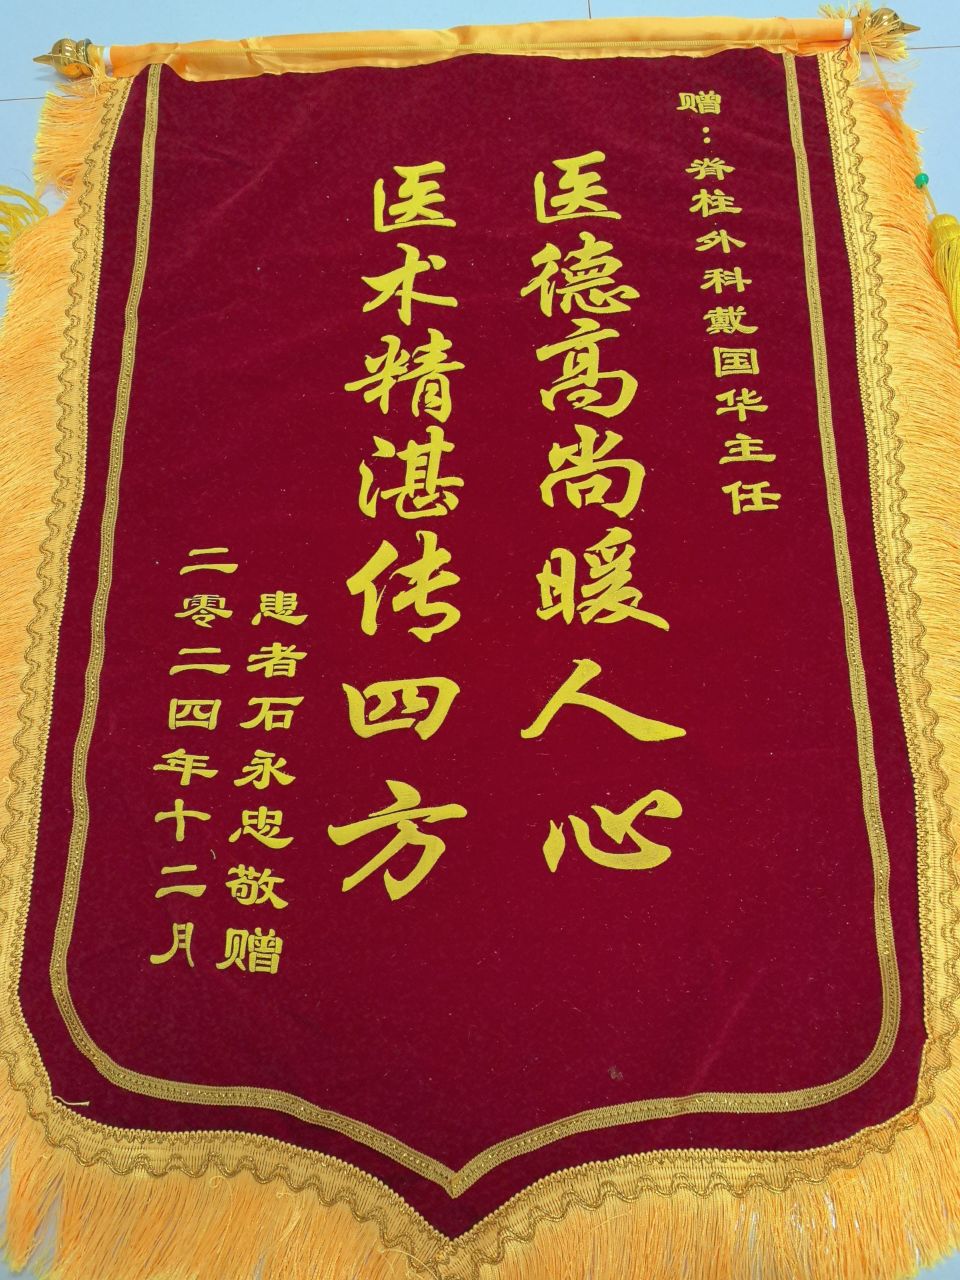 赠：脊柱外科戴国华主任
医德高尚暖人心
医术精湛传四方
患者石永忠敬赠
二零二四年十二月